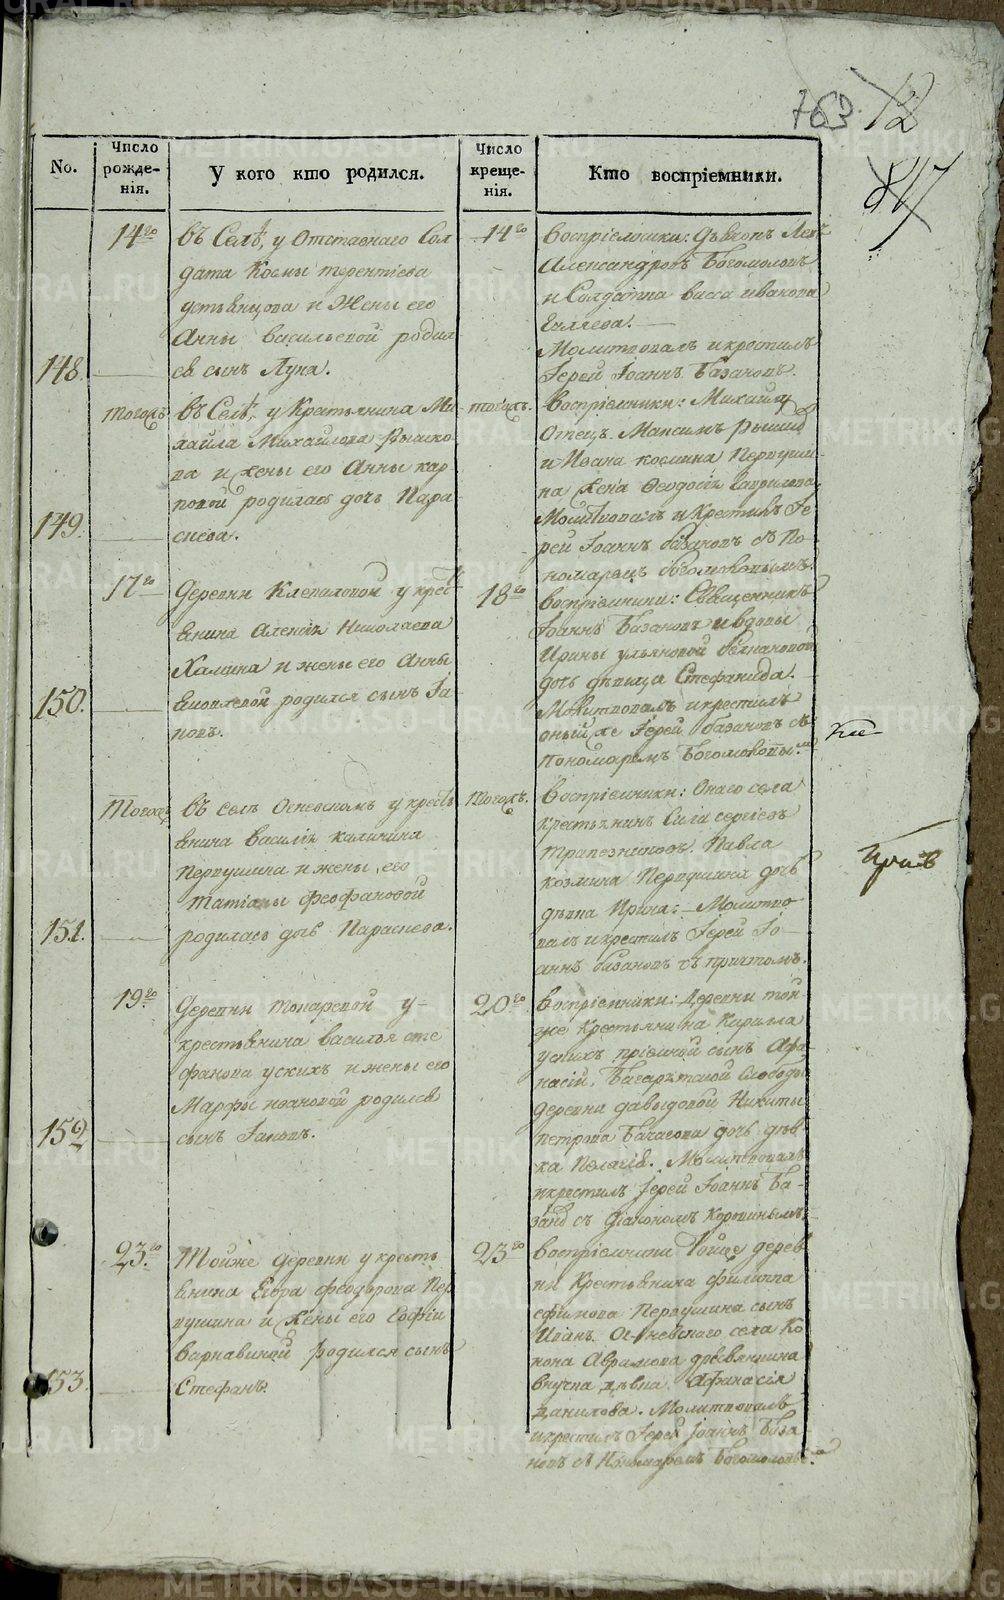 763 12
847
No.
Число рожде-нія.
У кого кто родился.
Число креще-нія.
Кто воспріемники.
148.
14го
въ Селѣ, у Отставнаго Сол
дата Космы терентіева
устьянцова и Жены его
Анны васильевой родил
ся сынъ Лука.
14го
Воспріемники:
Александровъ Богомоловъ
и Солдатка васса иванова
Молитвовалъ и крестилъ
Іерей Іоаннъ Базановъ.
149.
тогожъ
въ Селѣ, у Крестьянина Ми
хайла Михайлова
ва и жены его Анны кар
повой родилась дочь Пара
скева.
тогожъ.
Воспріемники: Михайлы
Отецъ Максимъ
и Ивана космина Перпуши
на жена Феодосія Гаврилова
Молитвовалъ и Крестилъ Іе
рей Іоаннъ базановъ съ По
номаремъ богомоловымъ.
150.
17го
деревни Клевакиной у крес
янина Алексія Николаева
Халина и жены его Анны
родился сынъ Іа
ковъ.
18го
воспріемники: Священникъ
Іоаннъ Базановъ и вдовы
Ирины ульяновой
дочь дѣвица Стефанида.
Молитвовалъ и крестилъ
оный же Іерей базановъ съ
пономаремъ Богомоловы.мъ
151.
Тогожъ
въ селѣ Огневскомъ у кресть
янина василія калинина
Перпушина и жены его
татіаны феофановой
родилась дочь Параскева.
Тогожъ.
Воспріемники: Онаго села
крестьянинъ
Павла
козмина Перпушина дочь
дѣвка Ирина: Молитво
валъ и крестилъ Іерей Іо-
аннъ базановъ съ причтомъ.
152
19го
деревни токаревой у-
крестьянина василья сте
фанова ускихъ и жены его
Марфы ивановой родился
сынъ Іаковъ.
20го
Воспріемники: деревни той
же крестьянина Кирилла
ускихъ пріемной сынъ Афа
насій, Багарятской Слободы
деревни давыдовой Никиты
петрова дочь дѣв
ка Пелагія. Молитвовалъ
и крестилъ Іерей Іоаннъ Ба-
занъ съ діакономъ
153.
23.го
Тойже деревни у кресть
янина Егора феодорова Пер
пушина и жены его Софіи
варнавиной родился сынъ
Стефанъ.
23го
воспріемники Тойже дерев
ни Крестьянина филиппа
ефимова Перпушина сынъ
Иванъ. Огневскаго села Ко
нона Аврамова
внучка дѣвка Афанасія
данилова. Молитвовалъ
и крестилъ Іерей Іоаннъ База
новъ съ Пономаремъ Богомоловы.мъ
METRIKI.GASO-URAL.RU